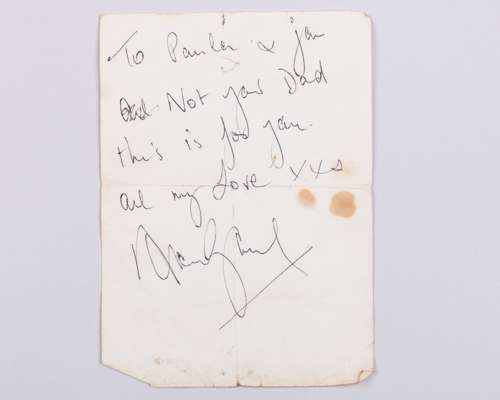 To Paula & Jan
Not your Dad
this is for you.
all my Love xxs